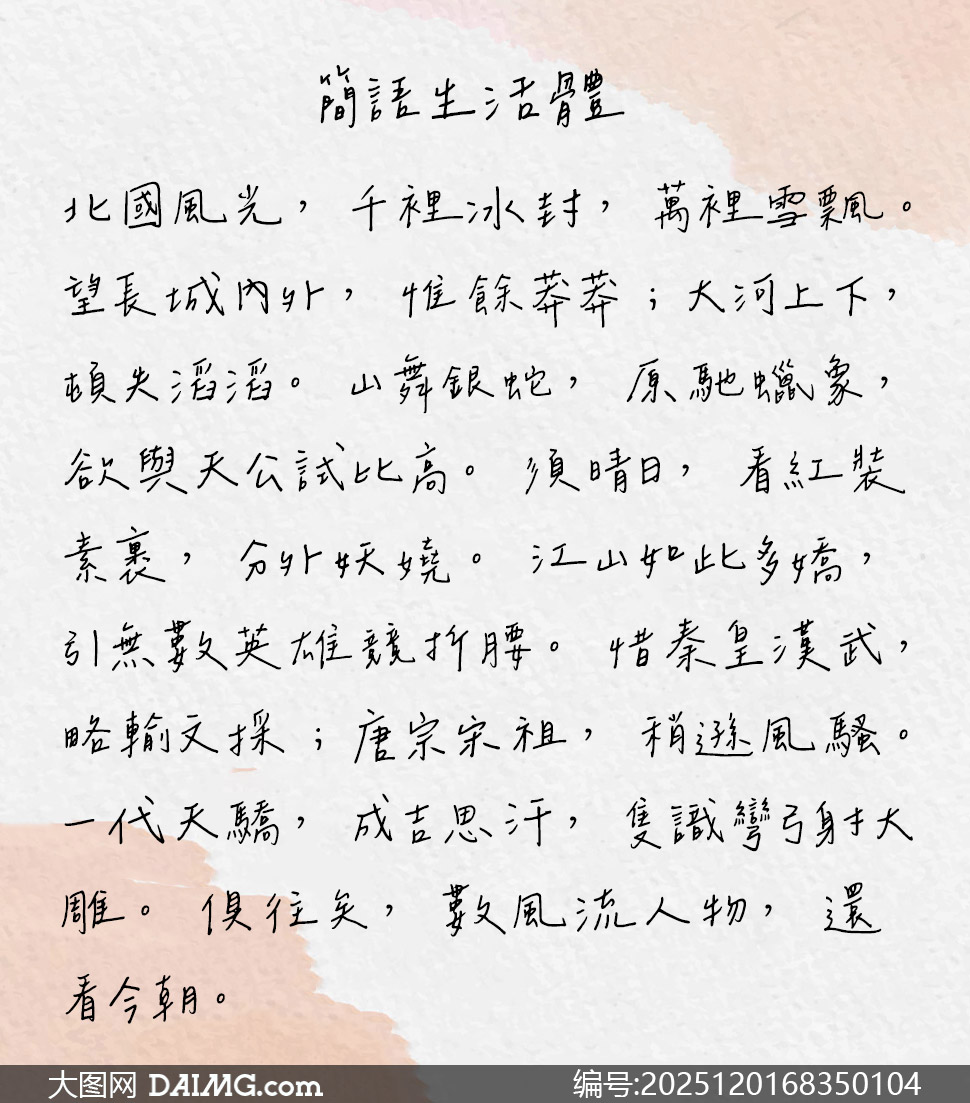 簡語生活體
北國風光，千裡冰封，萬裡雪飄。
望長城內外，惟餘莽莽；大河上下，
頓失滔滔。山舞銀蛇，原馳蠟象，
欲與天公試比高。須晴日，看紅裝
素裹，分外妖嬈。江山如此多嬌，
引無數英雄競折腰。惜秦皇漢武，
略輸文採；唐宗宋祖，稍遜風騷。
一代天驕，成吉思汗，隻識彎弓射大
雕。俱往矣，數風流人物，還
看今朝。
大图网 DAIMG.com
编号:2025120168350104